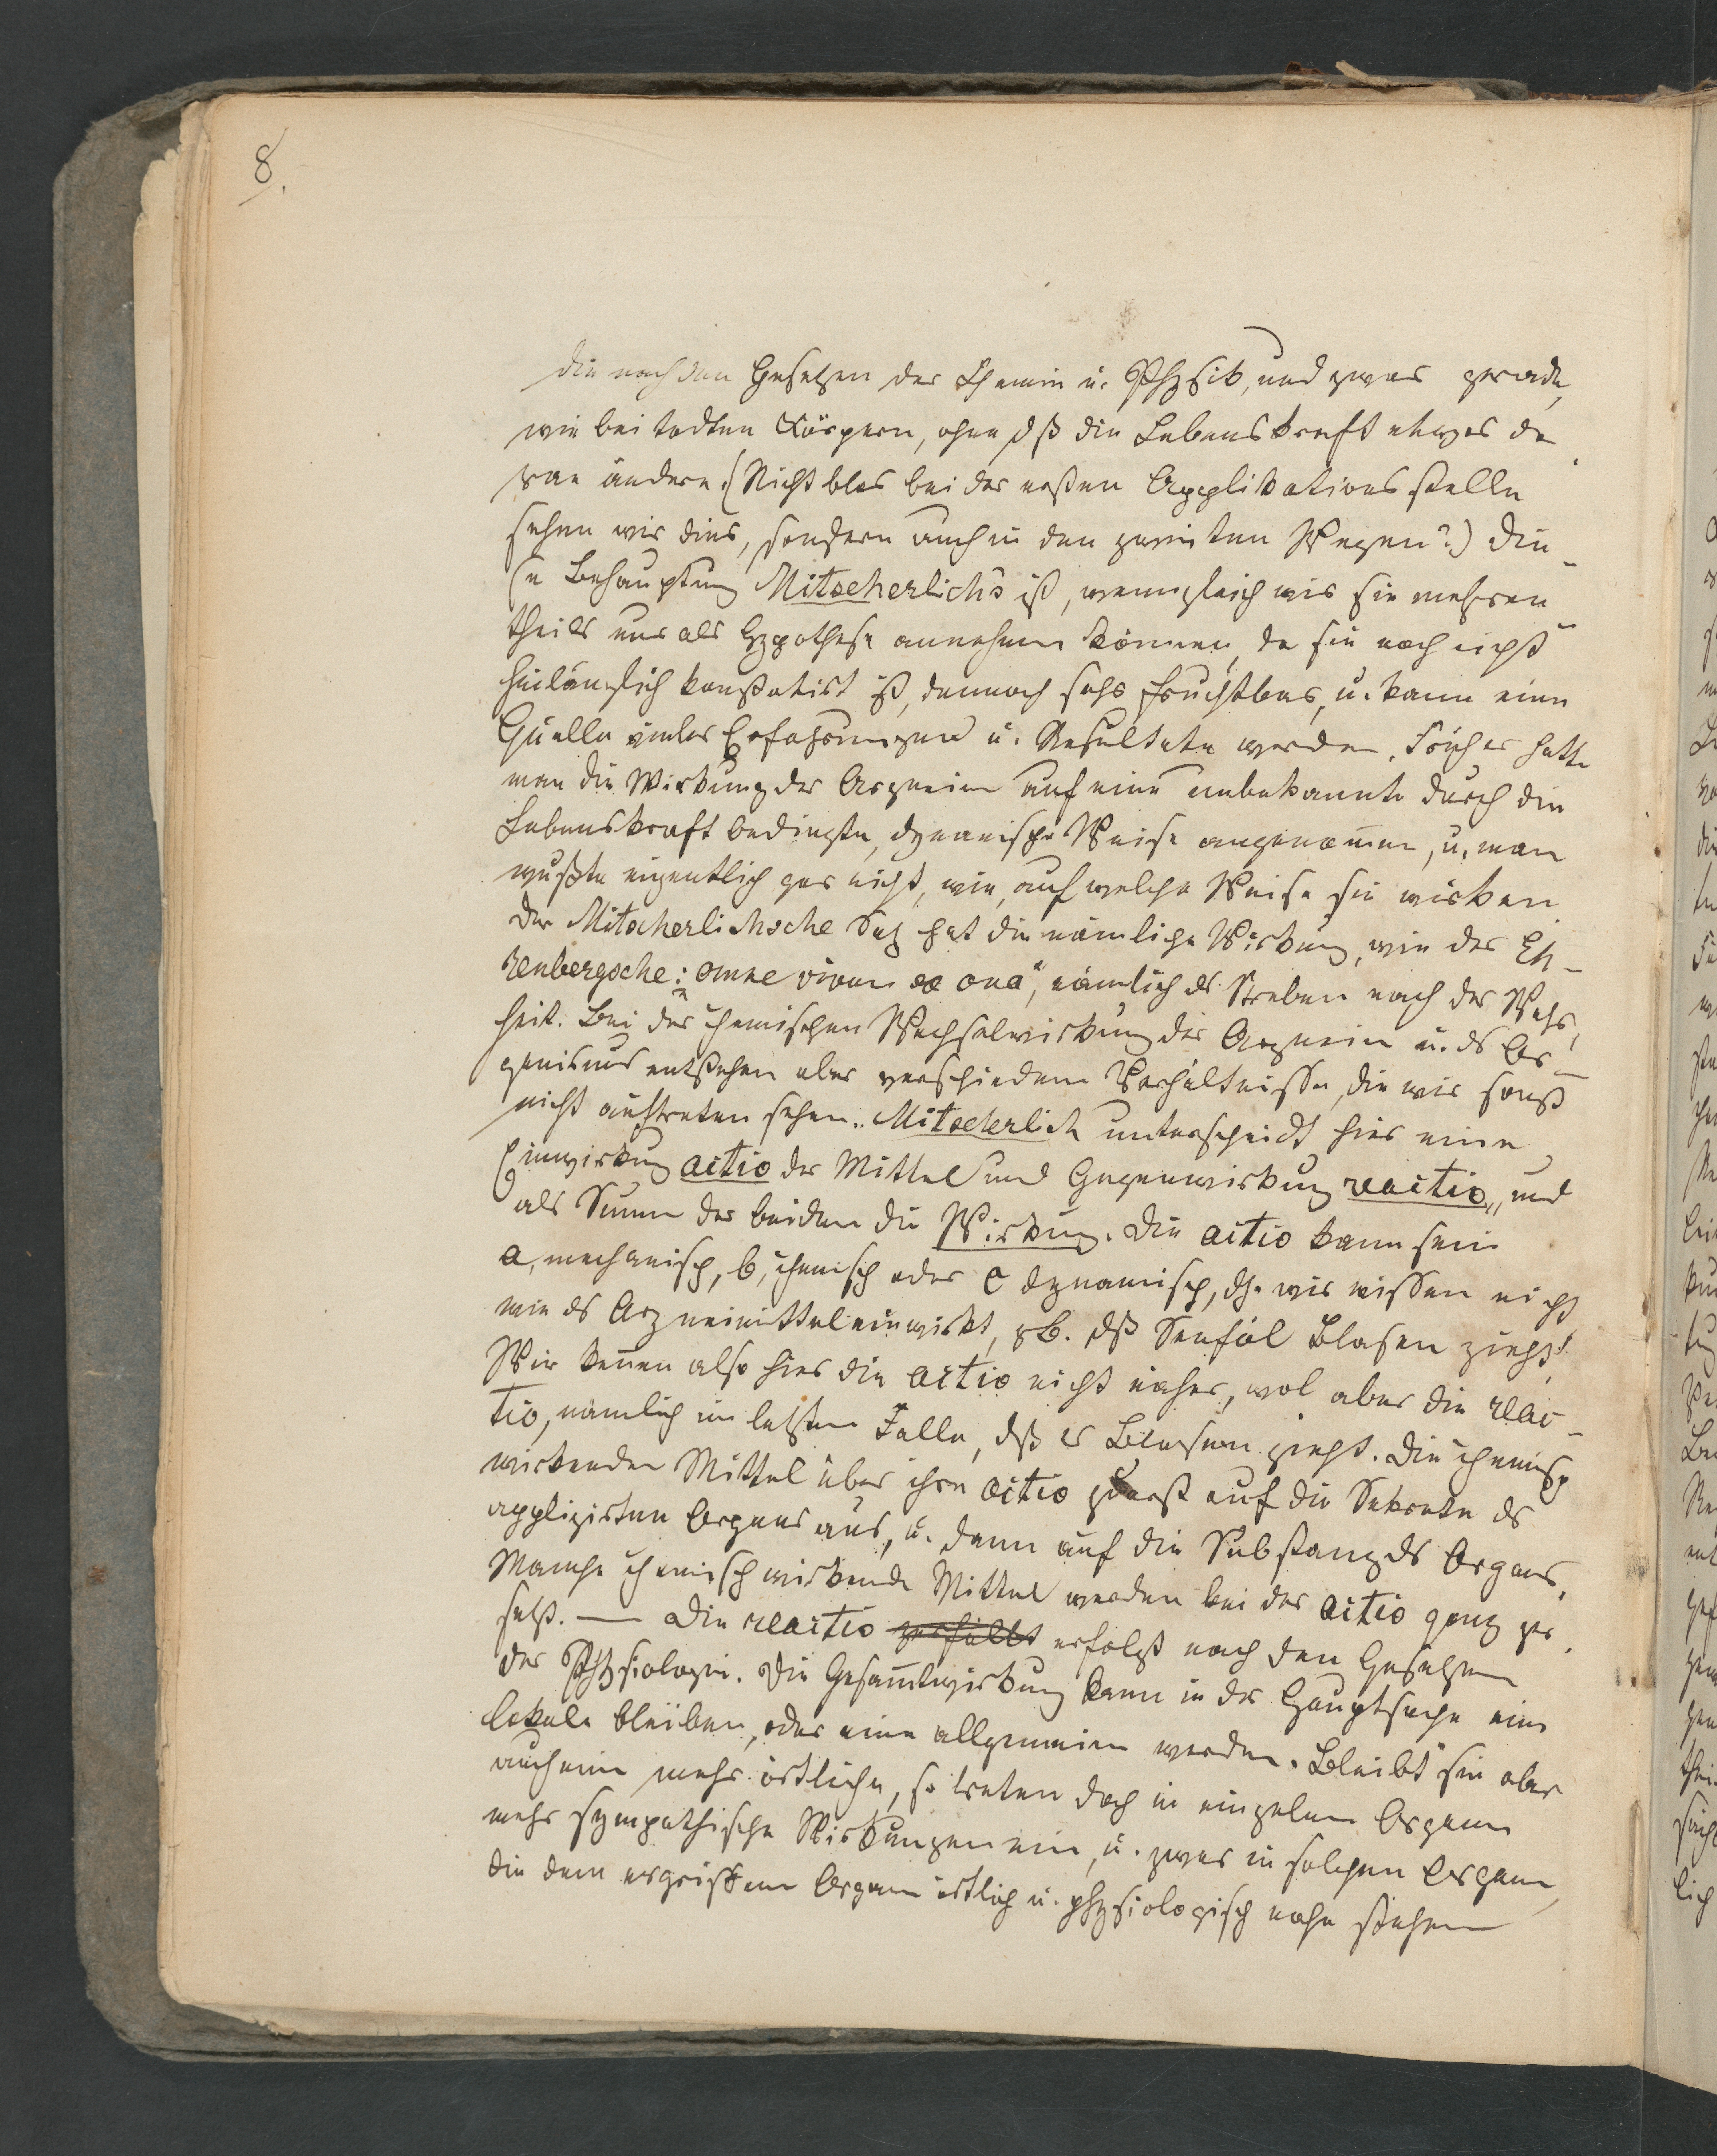 8.
die nach den Gesetzen der Chemie u. Physik, und zwar gerade,
wie bei todten Körpern, ohne dß die Lebenskraft etwas da
ran ändere. (Nicht blos bei der ersten Applikationsstelle
sehen wir dies, sondern auch in den zweiten Wegen?) Die-
se Behauptung Mitscherlich's ist, wenngleich wir sie mehren
theils nur als Hypothese annehmen können, da sie noch nicht
hinlänglich konstatirt ist, dennoch sehr fruchtbar, u. kann eine
Quelle vieler Erfahrungen u. Resultate werden. Früher hatte
man die Wirkung der Arzneien auf eine unbekannte durch die
Lebenskraft bedingte, dynamische Weise angenommen, u. man
wußte eigentlich gar nicht, wie, auf welche Weise sie wirken.
Der Mitscherlichsche Satz hat die nämliche Wirkung, wie der Eh-
renbergsche: "omne vivum ex ovo", nämlich ds Streben nach der Wahr,
heit. Bei der chemischen Wechselwirkung der Arzneien u. ds Or-
ganismus entstehen aber verschiedene Verhältnisse, die wir sonst
nicht auftreten sehen. Mitscherlich unterscheidt hier eine
Einwirkung actio der Mittel und Gegenwirkung reactio, und
als Summe der beiden die Wirkung. Die actio kann sein
a, mechanisch, b, chemisch oder c dynamisch, dh. wir wissen nicht
wie ds Arzneimittel einwirkt, zb. dß Senföl Blasen zieht.
Wir kennen also hier die actio nicht näher, wol aber die reac-
tio, nämlich im letzten Falle, dß es Blasen zieht. Die chemisch
wirkenden Mittel üben ihre actio zuerst auf die Sekrete ds
applizirten Organs aus, u. dann auf die Substanz ds Organs.
Manche chemisch wirkende Mittel werden bei der actio ganz zer
setzt. — Die reactio zerfällt erfolgt nach den Gesetzen
der Physiologie. Die Gesammtwirkung kann in der Hauptsache eine
lokale bleiben, oder eine allgemeine werden. Bleibt sie aber
auch eine mehr örtliche, so treten doch in einzelnen Organen
mehr sympathische Wirkungen ein, u. zwar in solchen Organen,
die dem ergriffenen Organe örtlich u. physiologisch nahe stehen